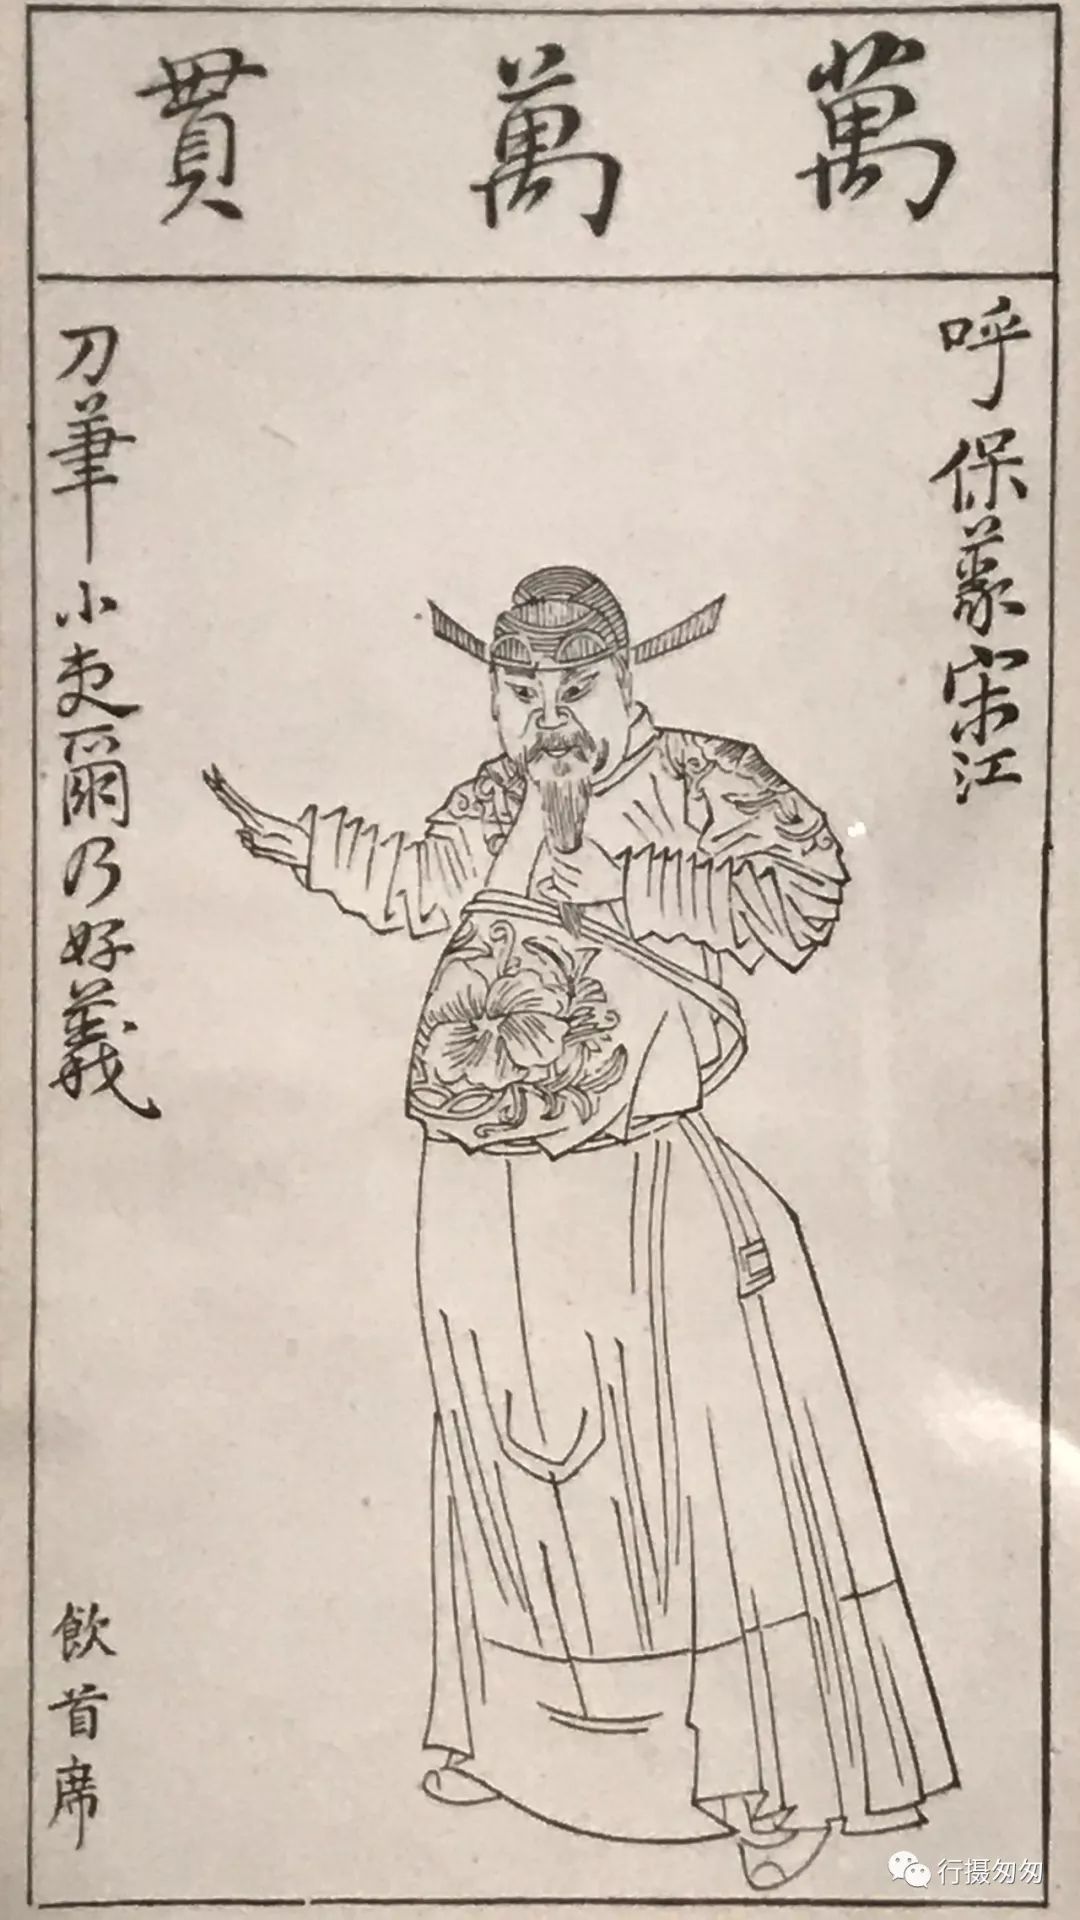 萬萬貫
呼保義宋江
刀筆小吏爾乃好義
飲首席
行摄匆匆